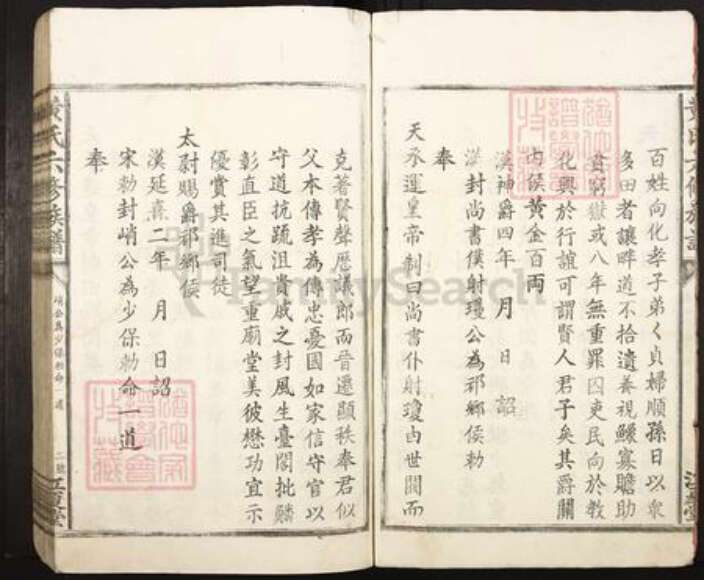 百姓向化孝子弟〱貞婦順孫日以衆
多田者讓畔道不拾遺養視鰥寡贍助
貧窮獄或八年無重罪囚吏民向於教
化興於行誼可謂賢人君子矣其爵關
內侯黃金百兩
漢神爵四年 月 日 詔
漢封尚書僕射瓊公為祁鄉侯勅
奉
天承運皇帝制曰尚書仆射瓊由世閥而
克著賢聲歷議郎而晉遷顯秩奉君似
父本傳孝為傳忠憂國如家信守官以
守道抗疏沮貴戚之封風生臺閣批鱗
彰直臣之氣望重廟堂美彼懋功宜示
優賞其進司徒
太尉賜爵祁鄉侯
漢延熹二年 月 日 詔
宋勅封峭公為少保勅命一道
奉
黃氏六修族譜
峭公為少保勅命一道
二號
江夏堂
FamilySearch